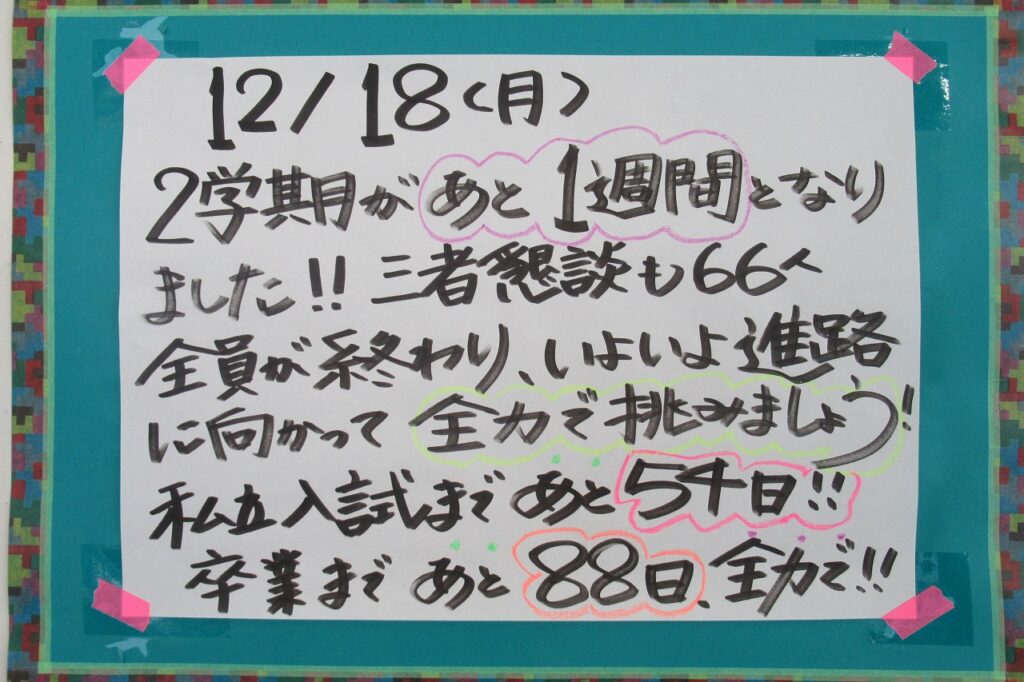 12/18(月)
2学期があと1週間となり
ました!!三者懇談も66人
全員が終わり、いよいよ進路
に向かって全力で挑みましょう!
私立入試まであと54日!!
卒業まであと88日、全力で!!